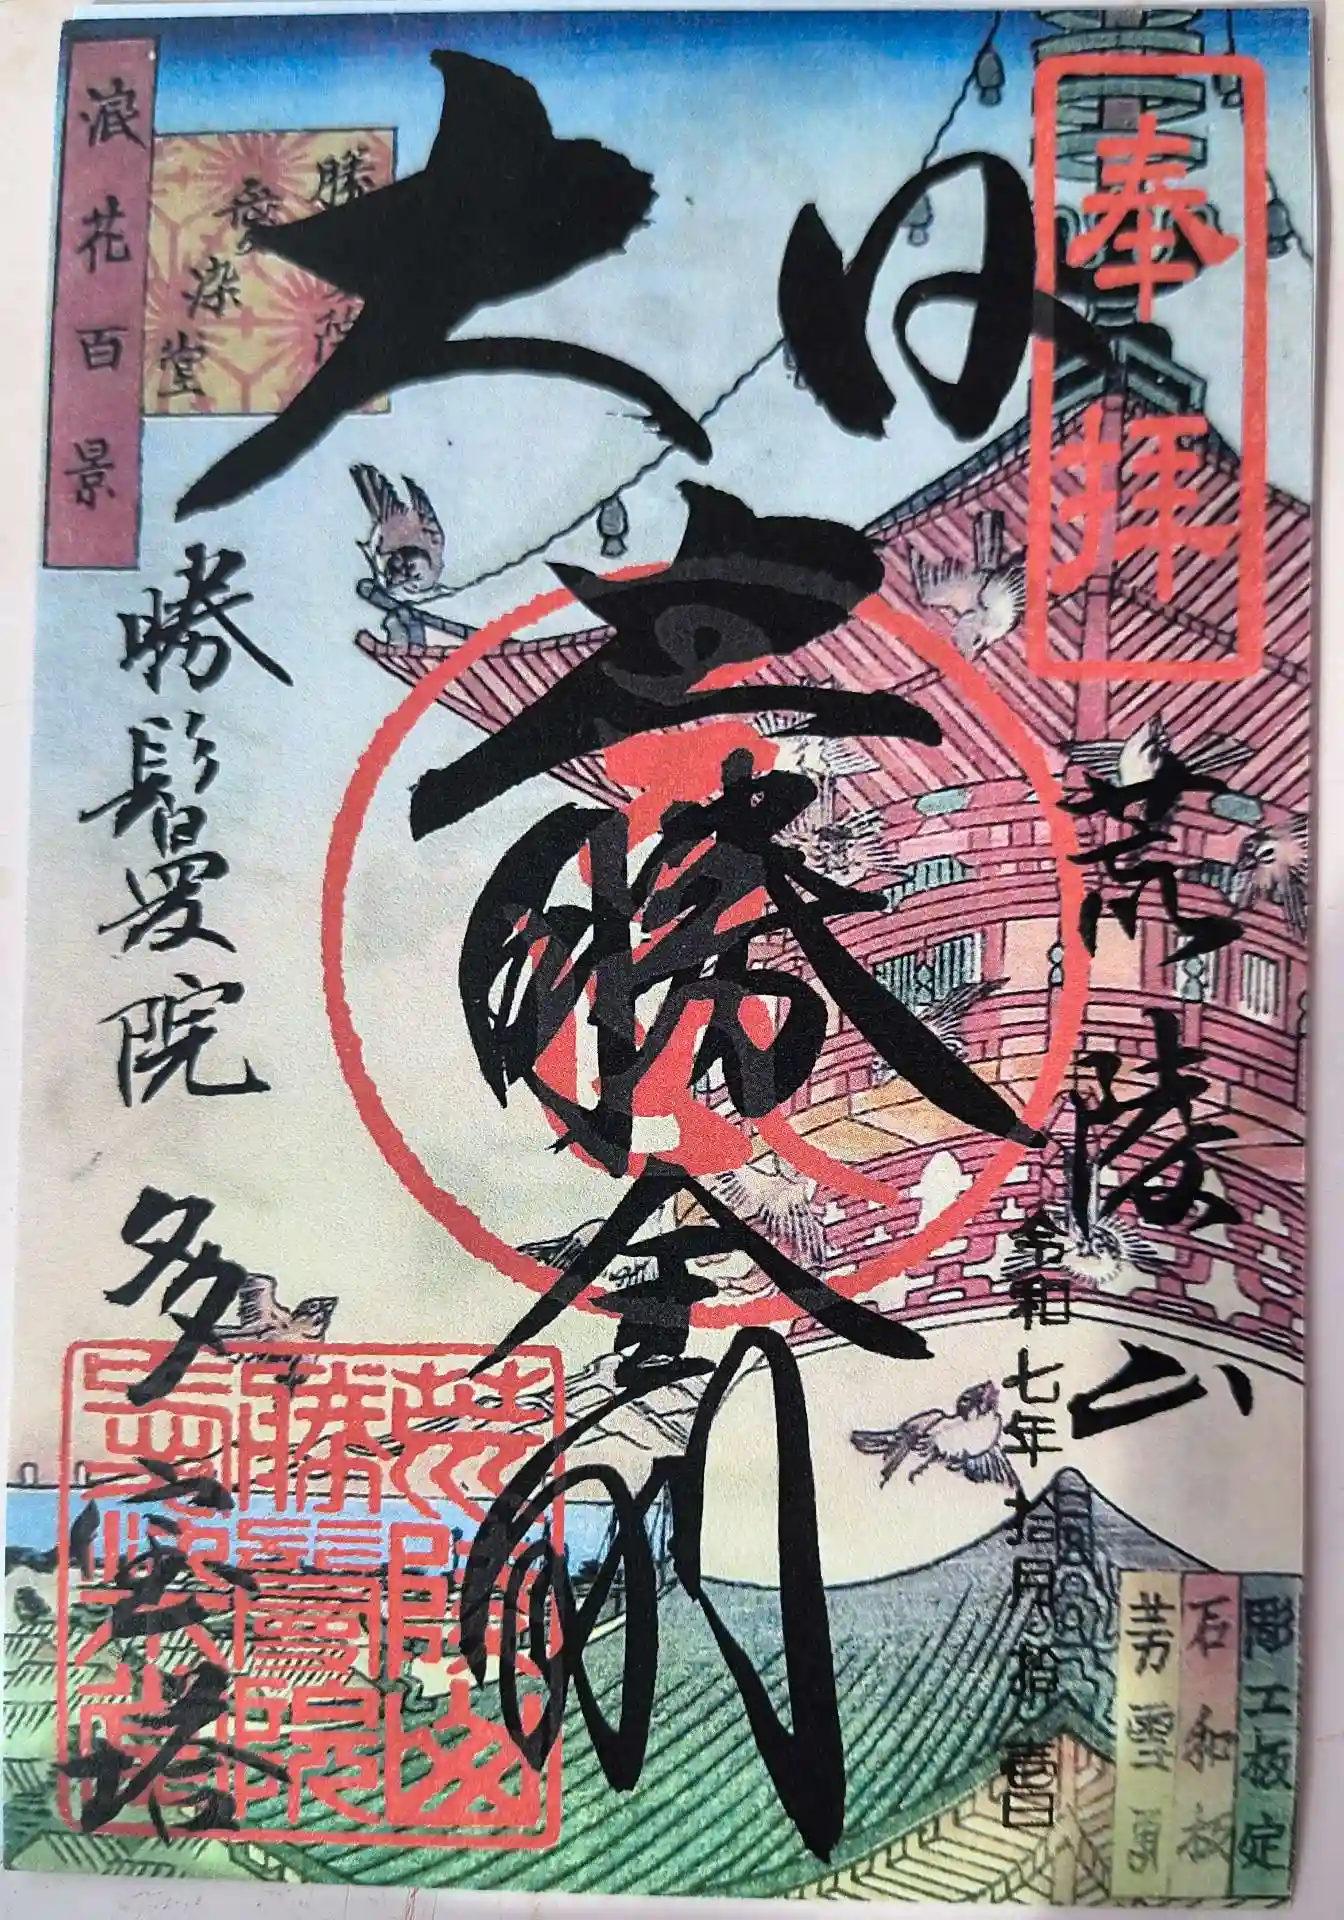 奉拝
荒陵山
令和七年拾月拾壱日
大日
大勝金剛
勝鬘院 多宝塔
荒陵山
勝鬘院
愛染堂
浪花百景
愛染堂
彫工板定
石和板
芳雪画